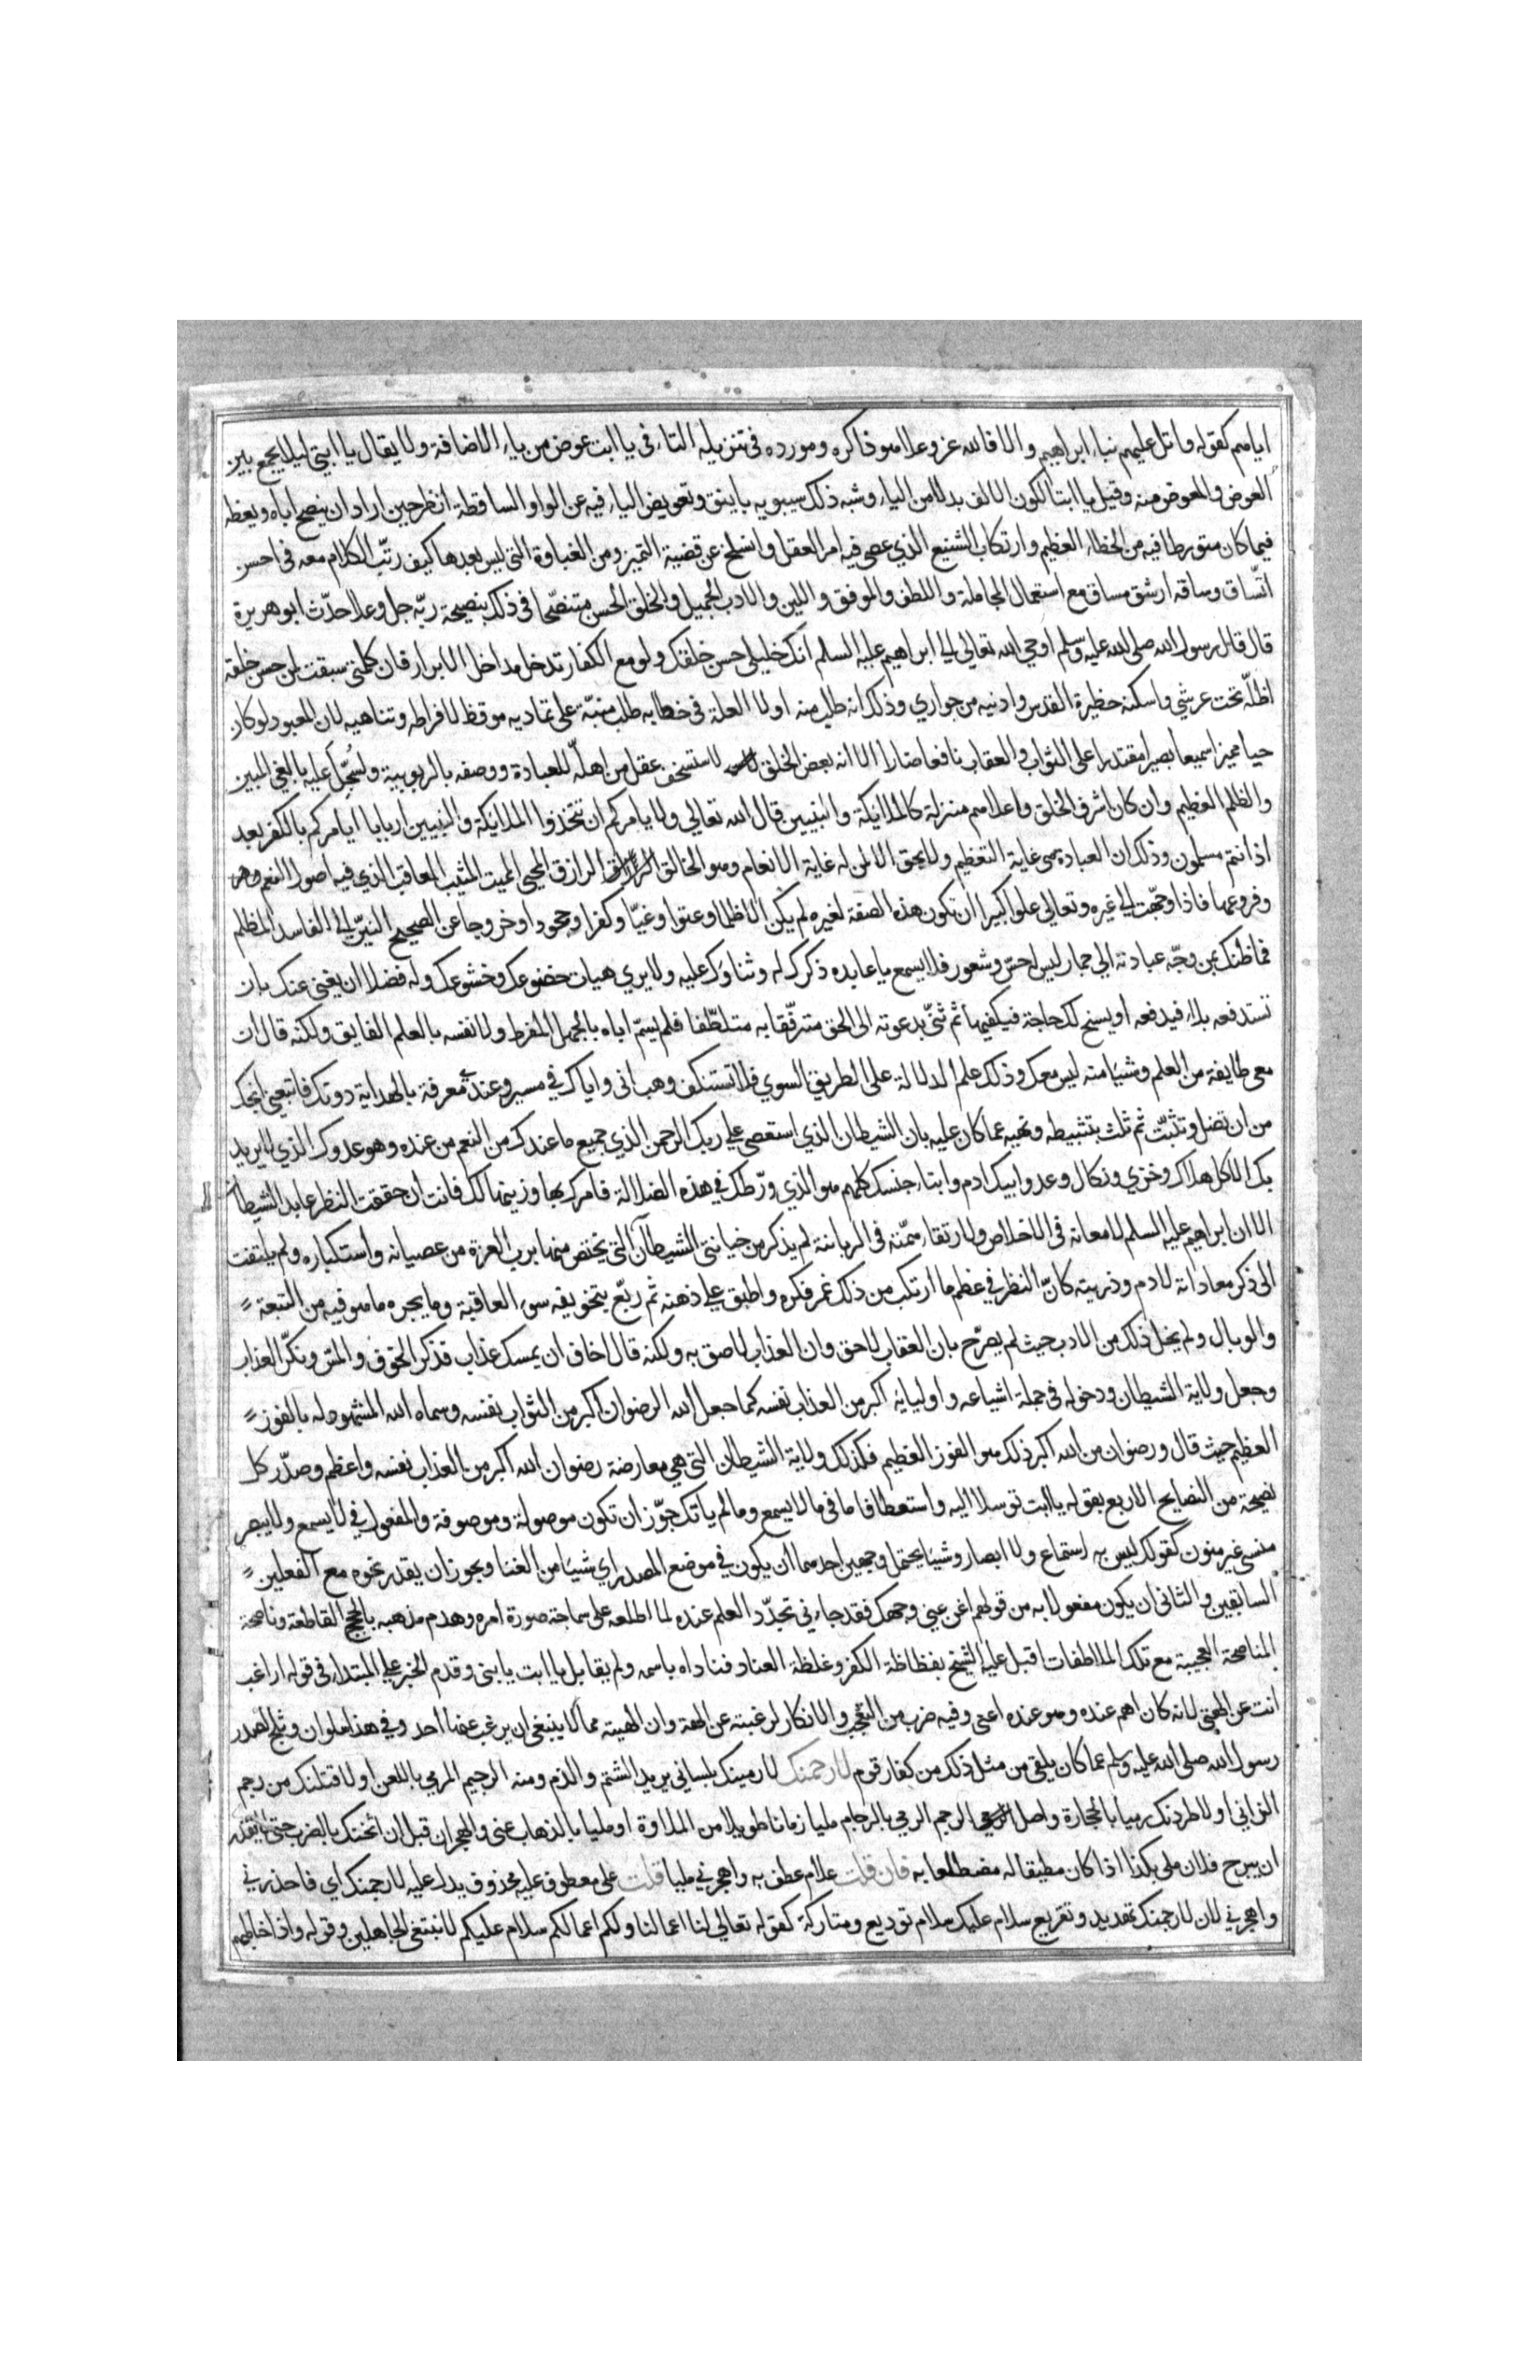 اياهم كقوله واتل عليهم نباء ابراهيم والا فالله عز وعلا هو ذاكره ومورده في تنزيله التاء في يا ابت عوض من ياء الاضافة ولا يقال يا ابتي ليلا يجمع بين
العوض والمعوض منه وقيل يا ابتا لكون الالف بدلا من الياء وشبه ذلك سيبويه باينق وتعويض الياء فيه عن الواو الساقطة انظر حين اراد ان ينصح اباه ويعظه
فيما كان متورطا فيه من الخطاء العظيم وارتكاب الشنيع الذي عصى فيه امر العقل وانسلخ عن قضية التميز ومن الغباوة التي ليس بعدها كيف رتّب الكلام معه في احسن
اتّساق وساقه ارشق مساق مع استعمال المجاملة واللطف والموفق واللين والادب الجميل والخلق الحسن متنصّحا في ذلك بنصيحة ربّه جل وعلا حدّث ابو هريرة
قال قال رسول الله صلى الله عليه وسلم اوحى الله تعالى الى ابراهيم عليه السلم انك خليلي حسن خلقك ولو مع الكفار تدخل مداخل الابرار فان كلمتي سبقت لمن حسن خلقه
اظلّه تحت عرشي واسكنه حظيرة القدس وادنيه من جواري وذلك انه طلب منه اولا العلة في خطابه طلب منبّه على تماديه موقظ لافراطه وتناهيه لان المعبود لو كان
حيا مميزا سميعا بصيرا مقتدرا على الثواب والعقاب نافعا ضارا الا انه بعض الخلق لاستسخف عقل من اهلّه للعبادة ووصفه بالربوبية ولسُجِّل عليه بالغي المبين
والظلم العظيم وان كان اشرف الخلق واعلاهم منزلة كالملايكة والنبيين قال الله تعالى ولا يامركم ان تتخذوا الملايكة والنبيين اربابا ايامركم بالكفر بعد
اذ انتم مسلمون وذلك ان العبادة هي غاية التعظيم ولا يحق الا لمن له غاية الانعام وهو الخالق الرازق المحيي المميت المثيب المعاقب الذي فيه اصول النعم وهو
وفروعها فاذا وجّهت الى غيره وتعالى علوا كبيرا ان تكون هذه الصفة لغيره لم يكن الا ظلما وعتوا وغيّا وكفرا وجحودا وخروجا عن الصحيح النيّر الى الفاسد المظلم
فما ظنك بمن وجّه عبادته الى جماد ليس له حسّ وشعور فلا يسمع يا عابده ذكرك له وثناوك عليه ولا يرى هيات خضوعك وخشوعك وله فضلا ان يغني عنك بان
تستدفعه بلاء فيدفعه او يسنح لك حاجة فيكفيها ثم ثنّى بدعوته الى الحق مترفّقا به متلطّفا فلم يسمّ اباه بالجهل المفرط ولا نفسه بالعلم الفايق ولكنه قال ان
معي طايفة من العلم وشيا منه ليس معك وذلك علم الدلالة على الطريق السوي فلا تستنكف وهب اني واياك في مسير وعندي معرفة بالهداية دونك فاتبعني انجك
من ان تضل وتثبّت ثم ثلث بتثبيطه ونهيه عما كان عليه بان الشيطان الذي استعصى على ربك الرحمن الذي جميع ما عندك من النعم من عنده وهو عدوك الذي لا يريد
بك الا كل هلاك وخزي ونكال وعدو ابيك ادم وابناء جنسك كلهم هو الذي ورّطك في هذه الضلالة فامرك بها وزينها لك فانت ان حققت النظر عابد الشيطان
الا ان ابراهيم عليه السلم لامعانه في الاخلاص ولارتقاء همّته في الرباننة لم يذكر من خيانتي الشيطان التي يختص منها برب العزة من عصيانه واستكباره ولم يلتفت
الى ذكر معاداته لادم وذريته كانّ النظر في عظم ما ارتكب من ذلك غمر فكره واطبق على ذهنه ثم ربّع بتخويفه سوء العاقبة وما يجره ما هو فيه من التبعة
والوبال ولم يخل ذلك من الادب حيث لم يصرّح بان العقاب لاحق وان العذاب لاصق به ولكنه قال اخاف ان يمسك عذاب فذكر الخوف والمسّ ونكّر العذاب
وجعل ولاية الشيطان ودخوله في جملة اشياعه واوليايه اكبر من العذاب نفسه كما جعل الله الرضوان اكبر من الثواب نفسه وسماه الله المشهود له بالفوز
العظيم حيث قال ورضوان من الله اكبر ذلك هو الفوز العظيم فكذلك ولاية الشيطان التي هي معارضة رضوان الله اكبر من العذاب نفسه واعظم وصدّر كل
نصيحة من النصايح الاربع بقوله يا ابت توسلا اليه واستعطافا ما في ما لا يسمع وما لم ياتك جوّز ان تكون موصولة وموصوفة والمفعول في لا يسمع ولا يبصر
منسي غير منون كقولك ليس به استماع ولا ابصار وشيا يحتمل وجهين احدهما ان يكون في موضع المصدر اي شيا من الغنا ويجوز ان يقدر نحوه مع الفعلين
السابقين والثاني ان يكون مفعولا به من قولهم اغن عني وجهك فقد جاءني تجدّد العلم عنده لما اطلعه على سماجة صورة امره وهدم مذهبه بالحجج القاطعة وناصحه
المناصحة العجيبة مع تلك الملاطفات اقبل عليه الشيخ بفظاظة الكفر وغلظة العناد فناداه باسمه ولم يقابل يا ابت يا بني وقدم الخبر على المبتداء في قوله اراغب
انت عن الهتي لانه كان اهم عنده وهو عنده اعنى وفيه ضرب من التعجب والانكار لرغبته عن الهته وان الهيته مما لا ينبغي ان يرغب عنها احد وفي هذا سلوان وثلج لصدر
رسول الله صلى الله عليه وسلم عما كان يلقى من مثل ذلك من كفار قوم لارجمنك لارمينك بلساني يريد الشتم والذم ومنه الرجيم المرمي باللعن او لاقتلنك من رجم
الزاني او لاطردنك رميا بالحجارة واصل الرجم الرمي بالرجام مليا زمانا طويلا من الملاوة او مليا بالذهاب عني والهجران قبل ان اثخنك بالضرب حتى لا تقدر
ان يبرح فلان ملي بكذا اذا كان مطيقا له مضطلعا به فان قلت علام عطف به واهجرني مليا قلت على معطوف عليه محذوف يدل عليه لارجمنك اي فاحذرني
واهجرني لان لارجمنك تهديد وتقريع سلام عليك سلام توديع ومتاركة كقوله تعالى لنا اعمالنا ولكم اعمالكم سلام عليكم لا نبتغي الجاهلين وقوله واذا خاطبهم